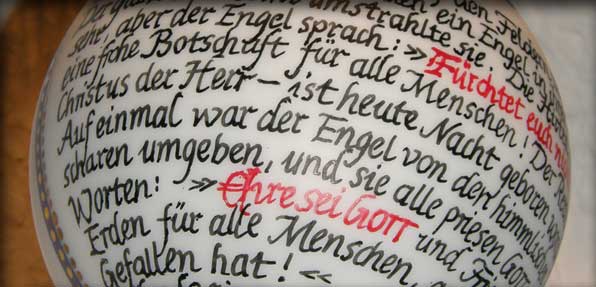 den Felder
umstrahlte sie. Die Hirten
sehr, aber der Engel sprach: » Fürchtet euch
eine frohe Botschaft für alle Menschen! Der
Christus der Herr – ist heute Nacht geboren
Auf einmal war der Engel von den himmlischen
scharen umgeben, und sie alle priesen Gott
Worten: » Ehre sei Gott und
Erden für alle Menschen,
Gefallen hat! «